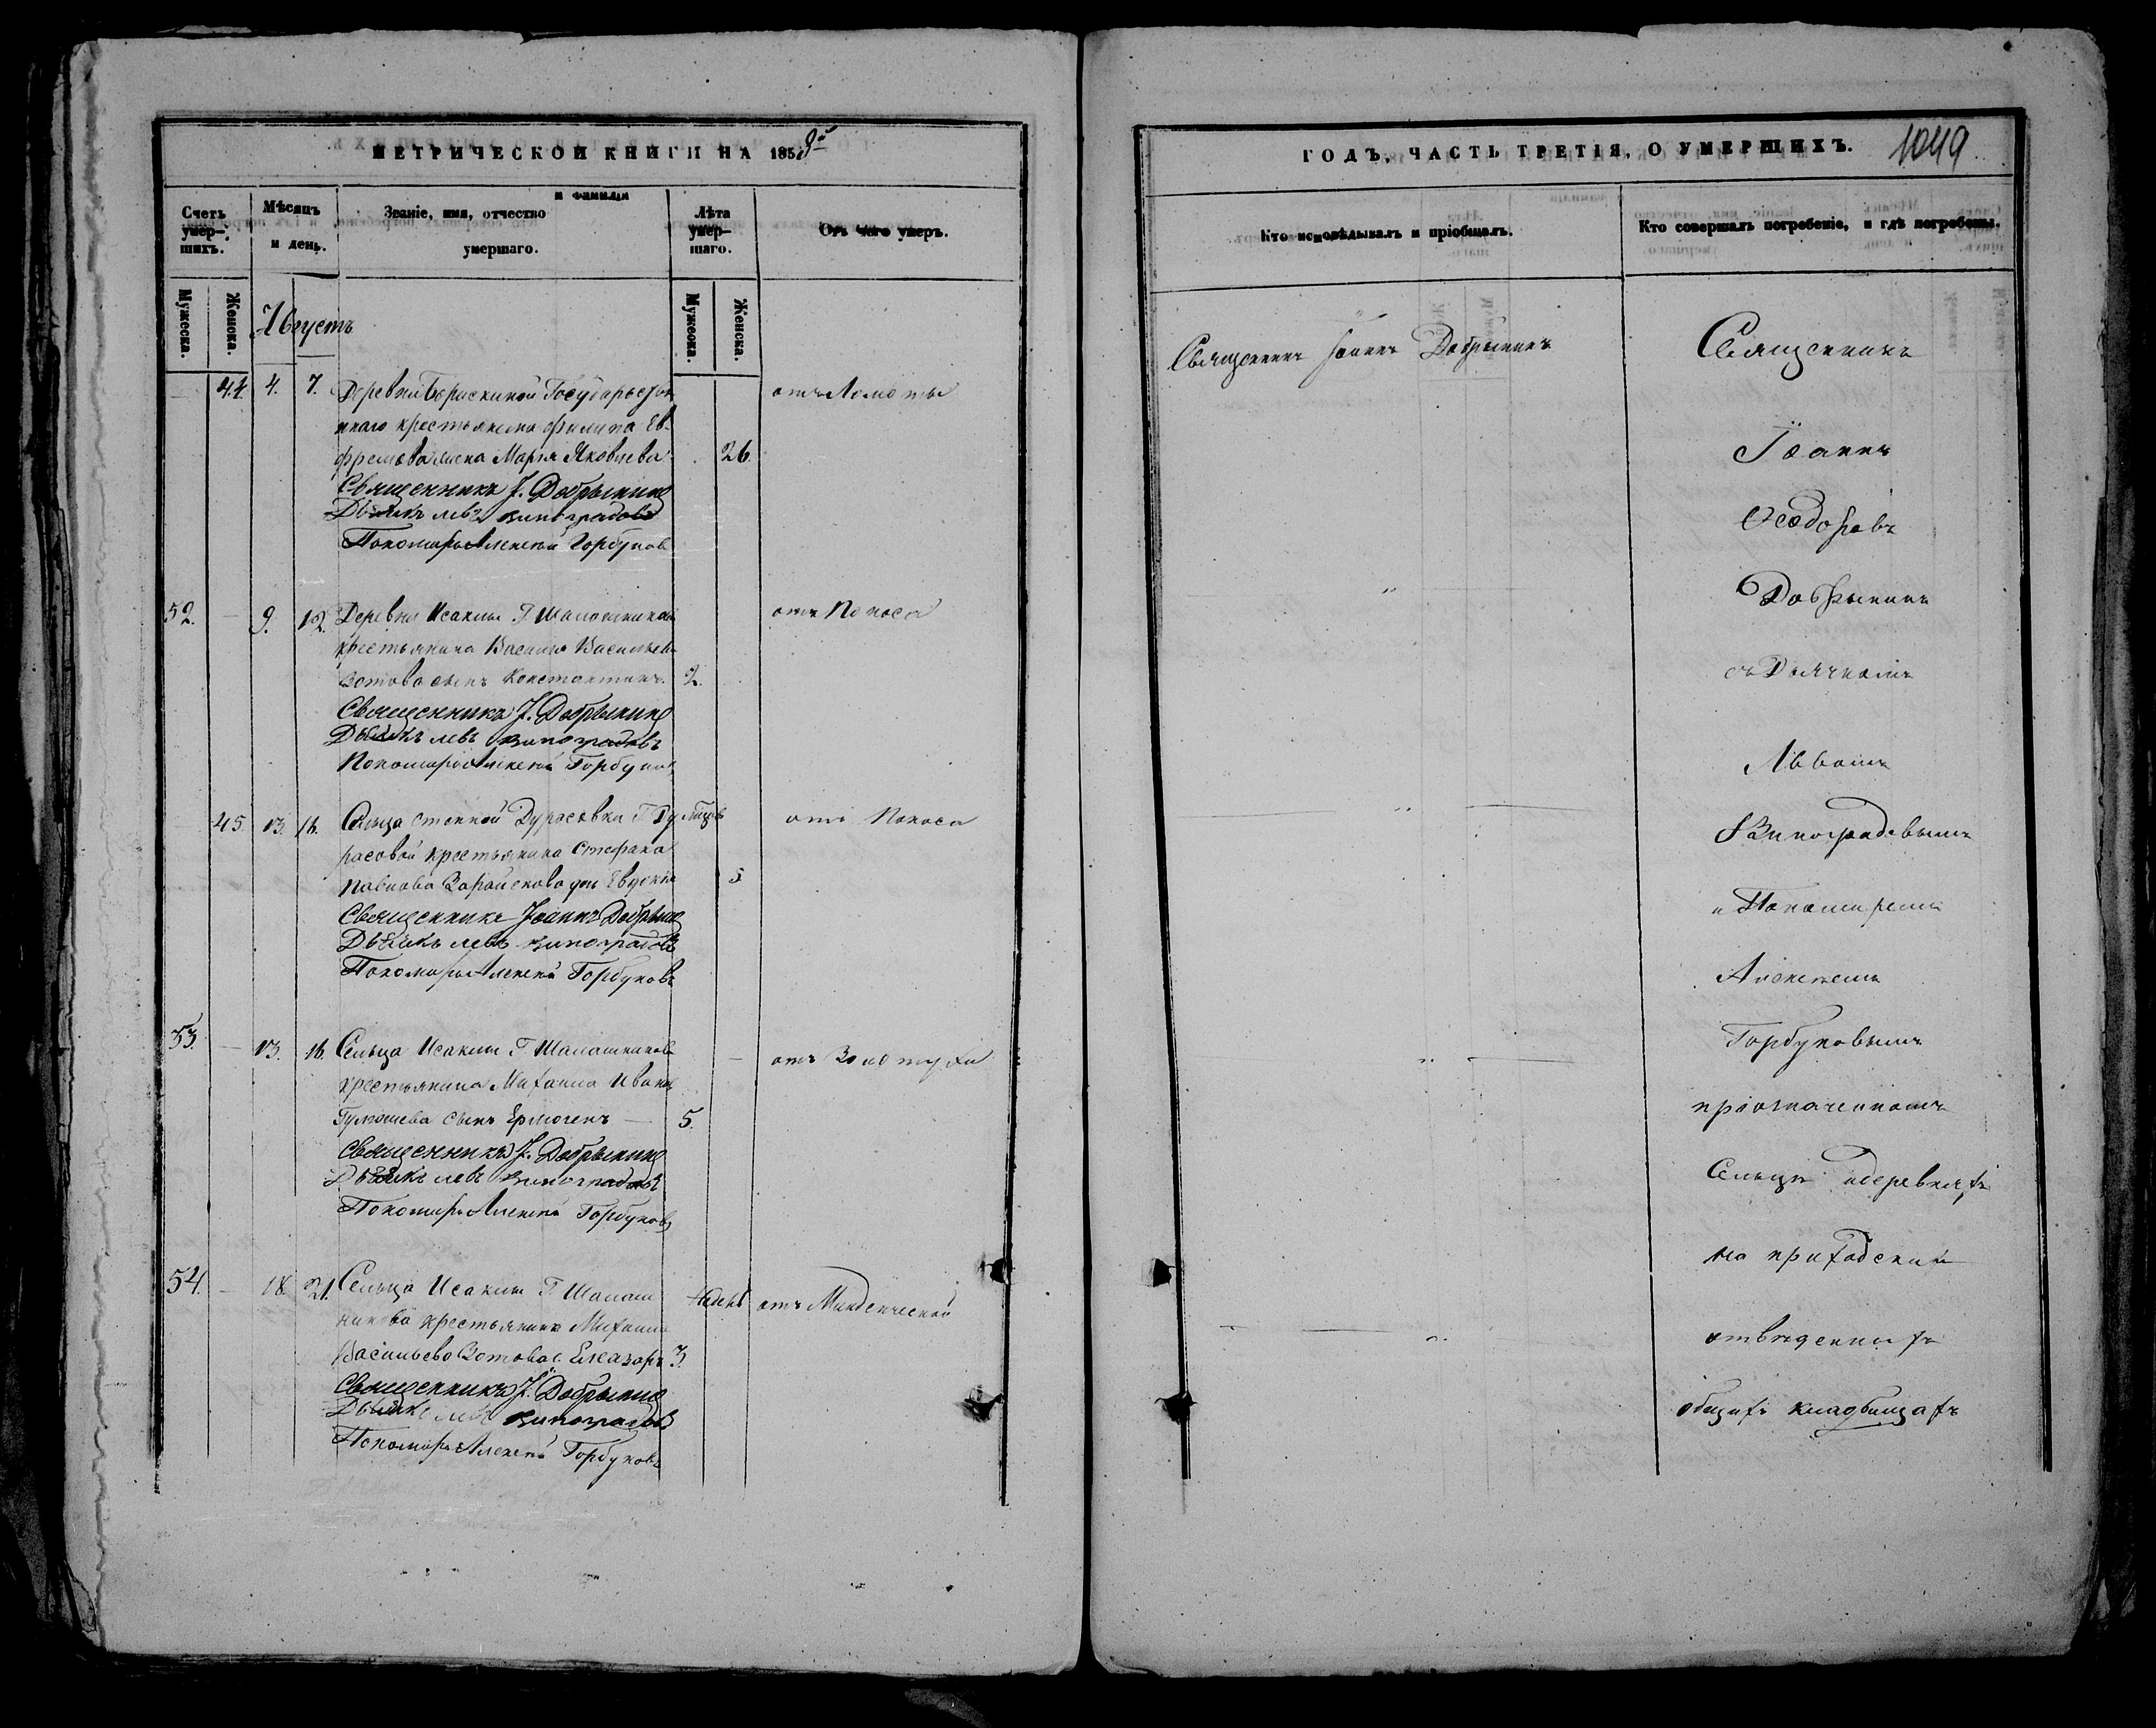 МЕТРИЧЕСКОЙ КНИГИ НА 1859й
Счетъ умер-шихъ.
Мѣсяцъ и день.
Званіе, имя, отчество и фамилія умершаго.
Лѣта умер-шаго.
Отъ чего умеръ.
Мужеска.
Женска.
Мужеска.
Женска.
Августъ
44. 4. 7. Деревни Борискиной Государьствен
наго крестьянина Филипа Ев-
фремова жена Марія Яковлева 26.
отъ Ломоты
Священникъ І. Добрынинъ
Дьячекъ левъ виноградовъ
Пономарь Алексѣй Горбуновъ
52. 9. 12. Деревни Исаклы Г Шалашниковой
крестьянина Василія Васильева
Зотова сынъ Константинъ. 2.
отъ Поноса
Священникъ І. Добрынинъ
Дьячекъ левъ виноградовъ
Пономарь Алексѣй Горбуновъ
45. 13. 16. Сельца Степной Дурасовки Г Ду
расовой крестьянина Стефана
Павлова Зарайскова дочь Евдокія 5
отъ Поноса
Священникъ Іоаннъ Добрынинъ
Дьячекъ левъ виноградовъ
Пономарь Алексѣй Горбуновъ
53. 13. 16. Сельца Исаклы Г Шалашниковой
крестьянина Михаила Ивана
сынъ Ермогенъ 5.
отъ Золотухи
Священникъ І. Добрынинъ
Дьячекъ левъ виноградовъ
Пономарь Алексѣй Горбуновъ
54. 18. 21. Сельца Исаклы Г Шалаш
никова крестьянина Михаила
Васильева Зотова с. Елеазаръ 3.
недель
отъ Младенческой
Священникъ І. Добрынинъ
Дьячекъ левъ виноградовъ
Пономарь Алексѣй Горбуновъ
ГОДЪ, ЧАСТЬ ТРЕТІЯ, О УМЕРШИХЪ.
1049
Кто исповѣдывалъ и пріобщалъ.
Кто совершалъ погребеніе, и гдѣ погребены.
Священникъ Іоаннъ Добрынинъ
Священникъ
Іоаннъ
Ѳеодоровъ
Добрынинъ
съ Дьячкомъ
Львомъ
Виноградовымъ
и Пономаремъ
Алексѣемъ
Горбуновымъ
при означенномъ
Сельцѣ и деревняхъ
на приходскихъ
отведенныхъ
общихъ кладбищахъ